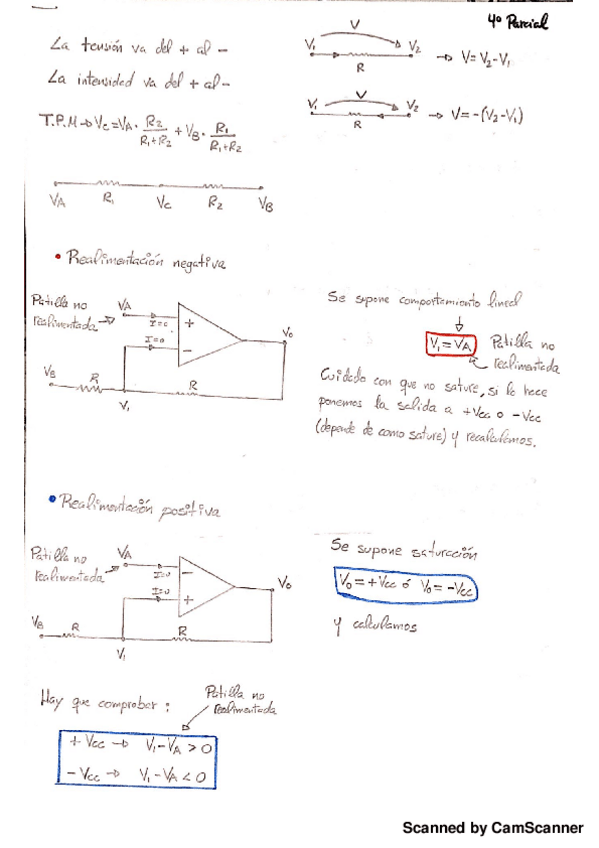 4º Parcial
La tensión va del + al -
La intensidad va del + al -
T.P.M → Vc = VA · R2/(R1+R2) + VB · R1/(R1+R2)
V
V1 V2 → V = V2 - V1
R
V
V1 V2 → V = -(V2 - V1)
R
VA R1 Vc R2 VB
• Realimentación negativa
Patilla no
realimentada
VA
I=0
+
I=0
-
V0
VB
R
R
V1
Se supone comportamiento lineal
V1 = VA Patilla no
realimentada
Cuidado con que no sature, si lo hace
ponemos la salida a +Vcc o -Vcc
(depende de como sature) y recalculamos.
• Realimentación positiva
Patilla no
realimentada
VA
I=0
-
I=0
+
V0
VB
R
R
V1
Se supone saturación
V0 = +Vcc ó V0 = -Vcc
y calculamos
Hay que comprobar:
Patilla no
realimentada
+Vcc → V1 - VA > 0
-Vcc → V1 - VA < 0
Scanned by CamScanner